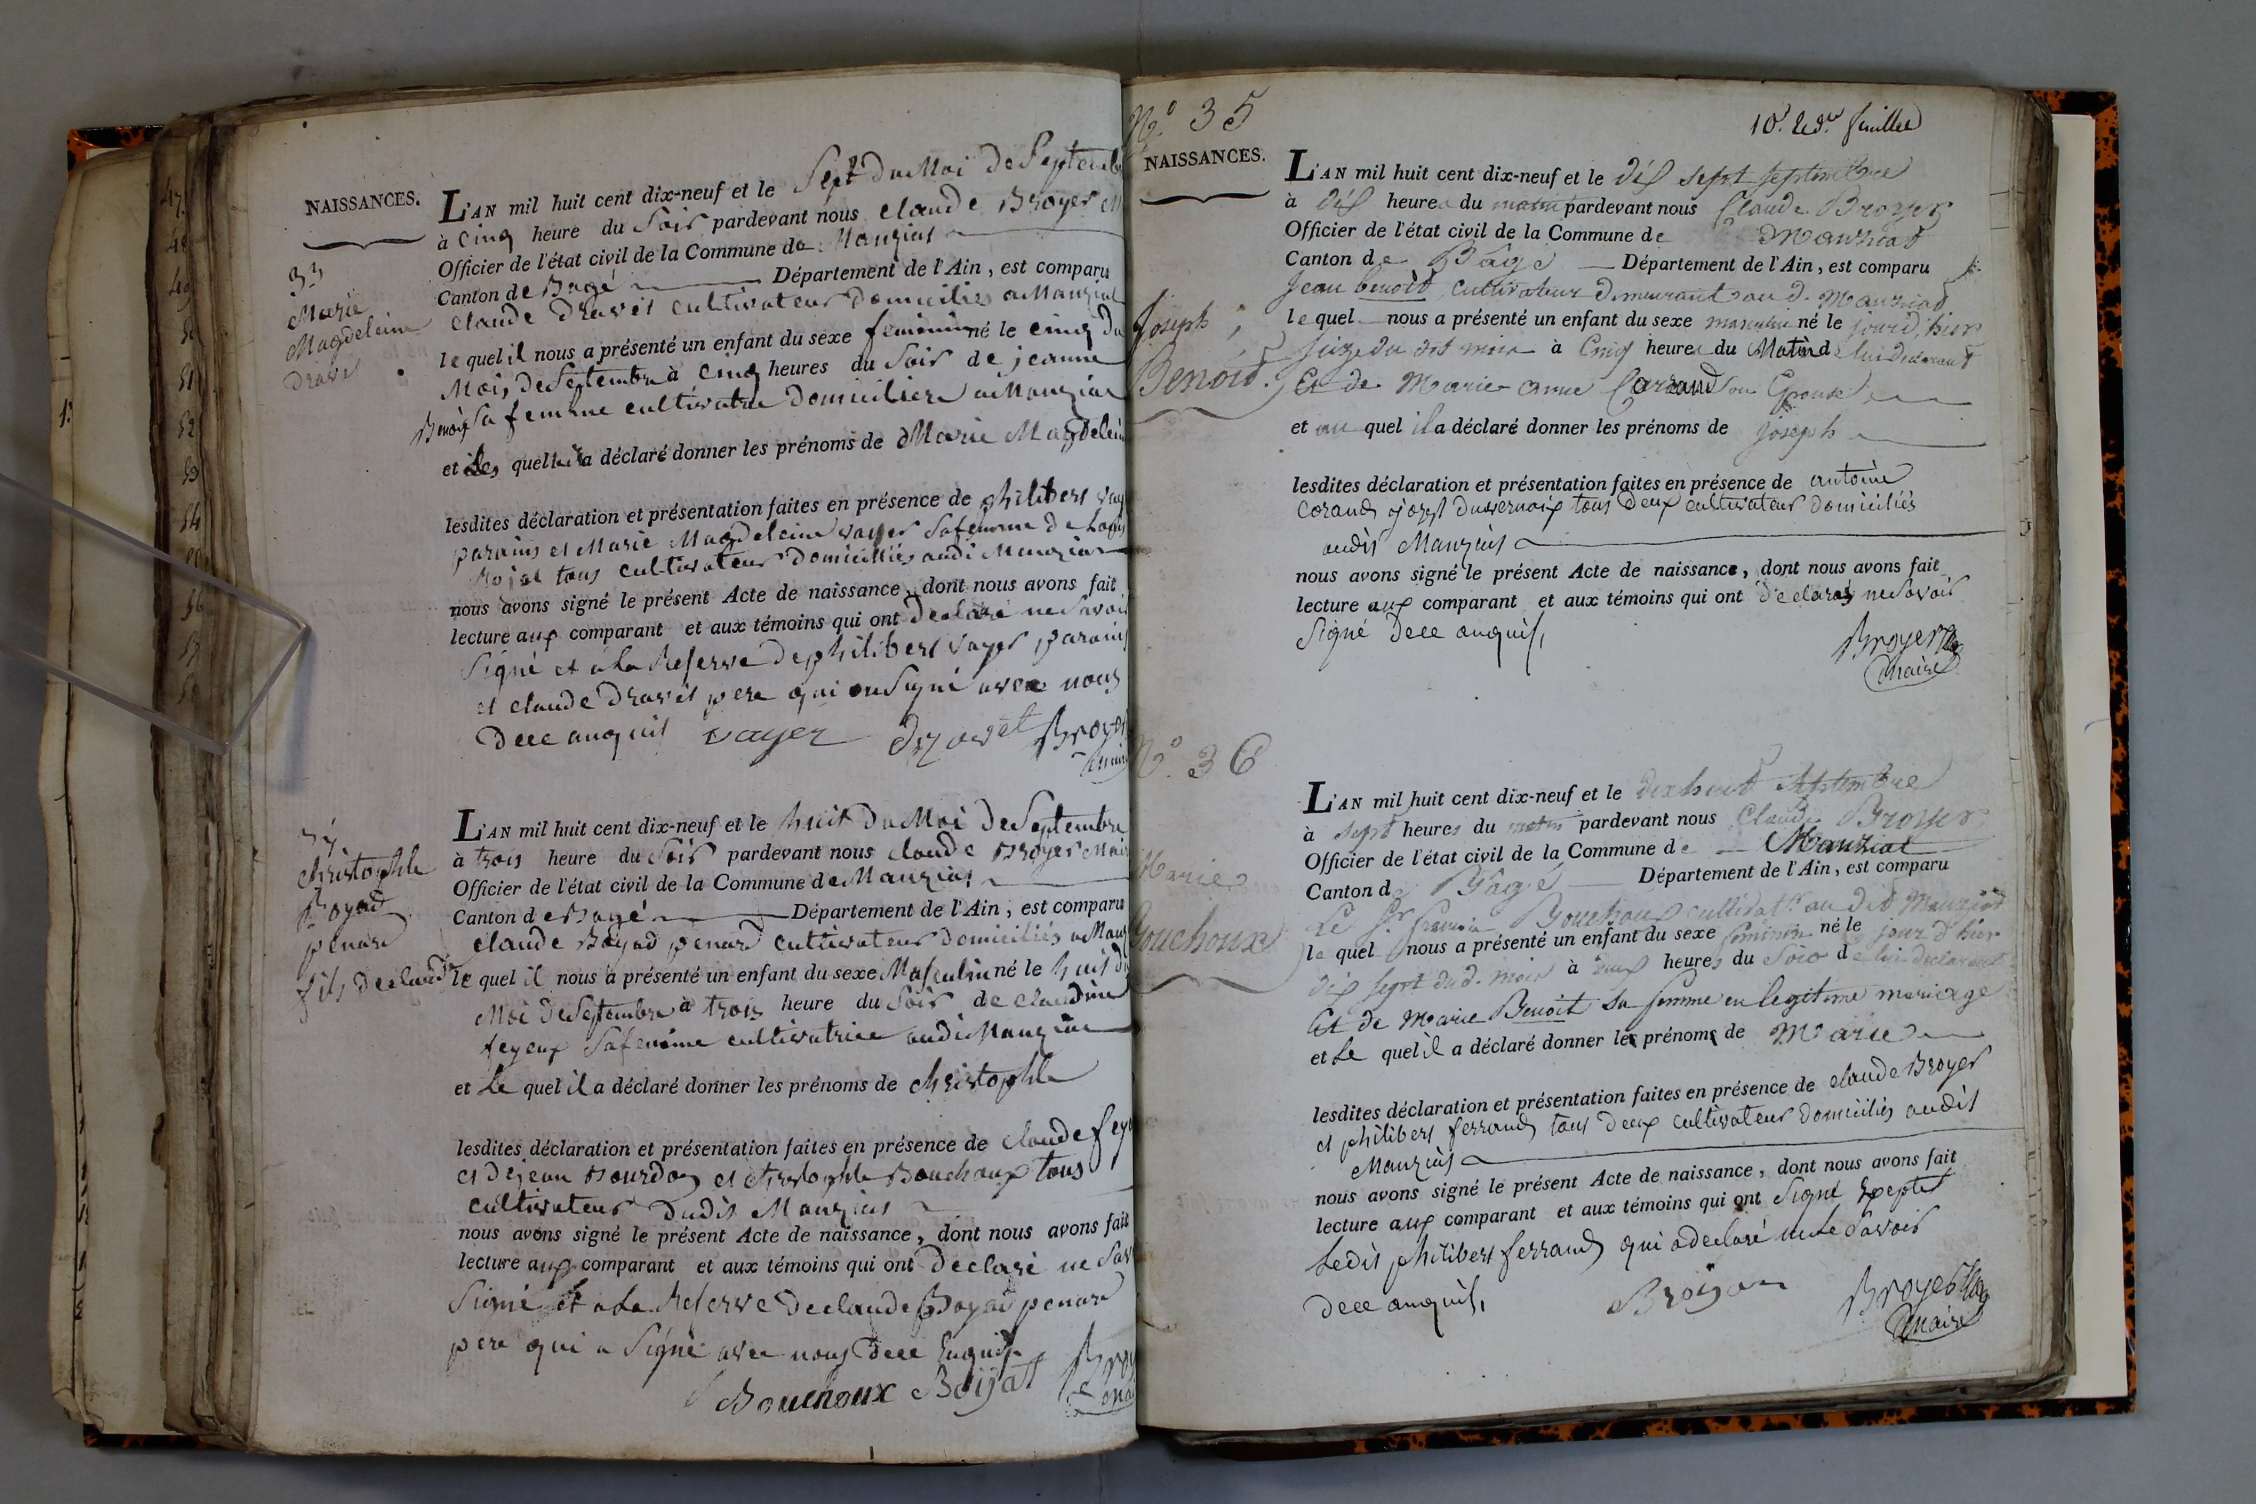 NAISSANCES.
33
Marie
Magdeleine
Dravet
L'AN mil huit cent dix-neuf et le Sept du Moi de Septembre
à Cinq heure du Soir pardevant nous Claude Broyer
Officier de l'état civil de la Commune de Manziat
Canton de Bagé Département de l'Ain, est comparu
Claude Dravet cultivateur domicilié a Manziat
le quel il nous a présenté un enfant du sexe feminin né le cinq du
Mois de Septembre à cinq heures du Soir de jeanne
Benoit Sa femme cultivatrice domiciliere a Manziat
et quel a déclaré donner les prénoms de Marie Magdeleine
lesdites déclaration et présentation faites en présence de philibert
parains et Marie Magdeleine vayer Sa femme de
tous cultivateur domiciliés audi Manziat
nous avons signé le présent Acte de naissance, dont nous avons fait
lecture aux comparant et aux témoins qui ont Declaré ne Savoir
Signé et a La Reserve de philibert vayer parains
et claude Dravet pere qui on Signé avec nous
Dece enquis vayer Dravet Broyer
34
christophle
Boyad
penard
fils de claude
L'AN mil huit cent dix-neuf et le huit du Moi de Septembre
à trois heure du Soir pardevant nous claude Broyer Maire
Officier de l'état civil de la Commune de Manziat
Canton de Bagé Département de l'Ain, est comparu
claude Boyad penard cultivateur domiciliés a
le quel il nous a présenté un enfant du sexe Masculin né le huit du
Moi de Septembre à trois heure du Soir de claudine
feyeux Sa femme cultivatrice audi Manziat
et Le quel il a déclaré donner les prénoms de christophle
lesdites déclaration et présentation faites en présence de claude
et de jean Bourdon et christophle Bouchoux tous
cultivateur dudit Manziat
nous avons signé le présent Acte de naissance, dont nous avons fait
lecture aux comparant et aux témoins qui ont Declaré ne
Signé et a La Reserve de claude Boyad penard
pere qui a Signé avec nous Dece Enquis
Bouchoux Boyat
10.e et d.er feuillet
N.o 35
NAISSANCES.
Joseph
Benoid.
L'AN mil huit cent dix-neuf et le dix sept septembre
à dix heures du matin pardevant nous Claude Broyer
Officier de l'état civil de la Commune de Manziat
Canton de Bagé Département de l'Ain, est comparu
Jean benoit, cultivateur demeurant au d. Manziad
le quel nous a présenté un enfant du sexe masculin né le jour d'hier
seize du dit mois à Cinq heures du Matin de lui déclarant
Et de Marie anne Corrand son Epouse
et au quel il a déclaré donner les prénoms de joseph
lesdites déclaration et présentation faites en présence de antoine
Corand tous Deux cultivateur domiciliés
audit Manziat
nous avons signé le présent Acte de naissance, dont nous avons fait
lecture aux comparant et aux témoins qui ont declarés ne Savoir
Signé Dece enquis,
Broyer
Maire
N.o 36
Marie
Bouchoux
L'AN mil huit cent dix-neuf et le dix huit Septembre
à sept heures du matin pardevant nous Claude Broyer
Officier de l'état civil de la Commune de Manziat
Canton de Bagé Département de l'Ain, est comparu
Le S.r Bouchoux cultivat.r au dit Manziad
le quel nous a présenté un enfant du sexe feminin né le jour d'hier
dix sept du d. mois à heures du Soir de lui declarant
Et de Marie Benoit sa femme en legitime mariage
et Le quel il a déclaré donner les prénoms de Marie
lesdites déclaration et présentation faites en présence de claude Broyer
et philibert ferrand tous Deux cultivateur domiciliés audit
Manziat
nous avons signé le présent Acte de naissance, dont nous avons fait
lecture aux comparant et aux témoins qui ont Signé Excepté
Ledit philibert ferrand qui a declaré ne Le Savoir
Dece enquis,
Broyer
Maire